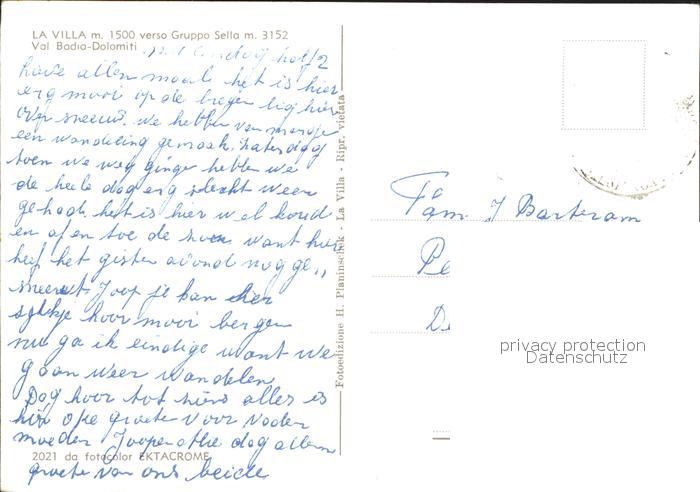 LA VILLA m. 1500 verso Gruppo Sella m. 3152
Val Badia-Dolomiti
half 2
allen maal het is hier
erg mooi op de bergen lig hier
over sneeuw. We hebben van morge
een wandeling gemaak. Zaterdag
toen we weg ginge hebben we
de heele dag erg slecht weer
gehad het is hier wel koud
en af en toe de want hier
heef het gister avond nog ge,,
sneeuwt Joop je kan hier
hoor mooi bergen
nu ga ik eindige want we
gaan weer wandelen
Dag hoor tot alles is
hier oke groete voor vader
moeder Joop dag allem
groete van ons beide
2021 da fotocolor EKTACROME
Fotoedizione H. Planinschek - La Villa - Ripr. vietata
Fam J Barteram
Pe
De
privacy protection
Datenschutz